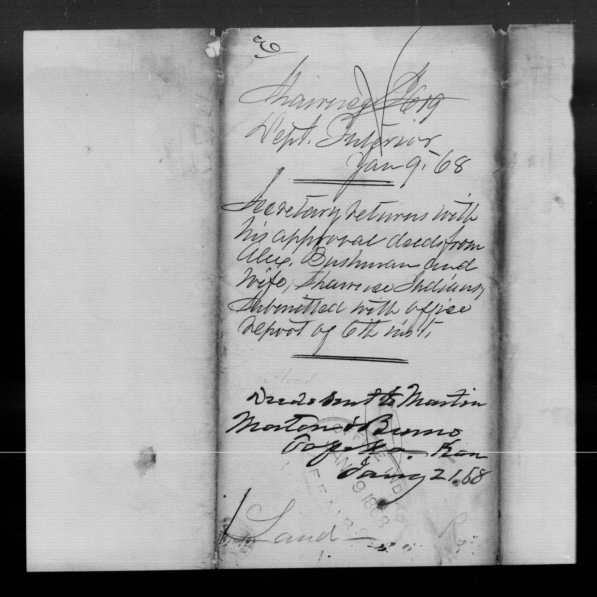 Shawnee I 619
Dept. Interior
Jan 9. '68
Secretary returns with
his approval deeds from
Alex. Bushman and
Wife, Shawnee Indians,
Submitted with office
report of 6th inst.
Deeds sent to Martin
Morton & Burns
Topeka Kan
Jany 21. 68
OFFICE IND
JAN 9 1868
Land